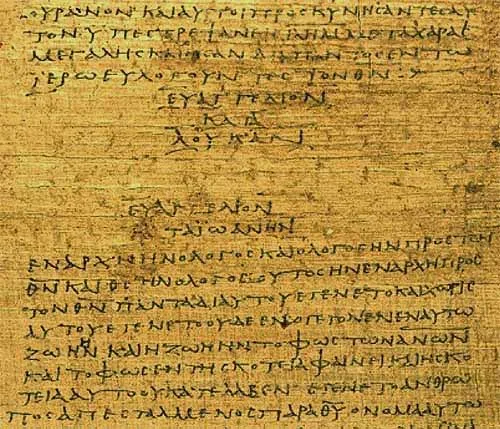 ΟΥΡΑΝΟΝ ΚΑΙ ΑΥΤΟΙ ΠΡΟϹΚΥΝΗϹΑΝΤΕϹ ΑΥ
ΤΟΝ ΥΠΕϹΤΡΕΨΑΝ ΜΕΤΑ ΧΑΡΑϹ
ΜΕΓΑΛΗϹ ΚΑΙ ΗϹΑΝ ΔΙΑ ΠΑΝΤΟϹ ΕΝ ΤΩ
ΙΕΡΩ ΕΥΛΟΓΟΥΝΤΕϹ ΤΟΝ Θ̅Ν̅
ΕΥΑΓΓΕΛΙΟΝ
ΚΑΤΑ
ΛΟΥΚΑΝ
ΕΥΑΓΓΕΛΙΟΝ
ΚΑΤΑ ΙΩΑΝΗΝ
ΕΝ ΑΡΧΗ ΗΝ Ο ΛΟΓΟϹ ΚΑΙ Ο ΛΟΓΟϹ ΗΝ ΠΡΟϹ ΤΟΝ
Θ̅Ν̅ ΚΑΙ Θ̅Ϲ̅ ΗΝ Ο ΛΟΓΟϹ ΟΥΤΟϹ ΗΝ ΕΝ ΑΡΧΗ ΠΡΟϹ
ΤΟΝ Θ̅Ν̅ ΠΑΝΤΑ ΔΙ ΑΥΤΟΥ ΕΓΕΝΕΤΟ ΚΑΙ ΧΩΡΙϹ
ΑΥΤΟΥ ΕΓΕΝΕΤΟ ΟΥΔΕ ΕΝ Ο ΓΕΓΟΝΕΝ ΕΝ ΑΥΤΩ
ΖΩΗ ΗΝ ΚΑΙ Η ΖΩΗ ΗΝ ΤΟ ΦΩϹ ΤΩΝ Α̅Ν̅Ω̅Ν̅
ΚΑΙ ΤΟ ΦΩϹ ΕΝ ΤΗ ϹΚΟΤΕΙΑ ΦΑΙΝΕΙ ΚΑΙ Η ϹΚΟ
ΤΕΙΑ ΑΥΤΟ ΟΥ ΚΑΤΕΛΑΒΕΝ ΕΓΕΝΕΤΟ ΑΝΘΡΩ
ΠΟϹ ΑΠΕϹΤΑΛΜΕΝΟϹ ΠΑΡΑ Θ̅Υ̅ ΟΝΟΜΑ ΑΥΤΩ